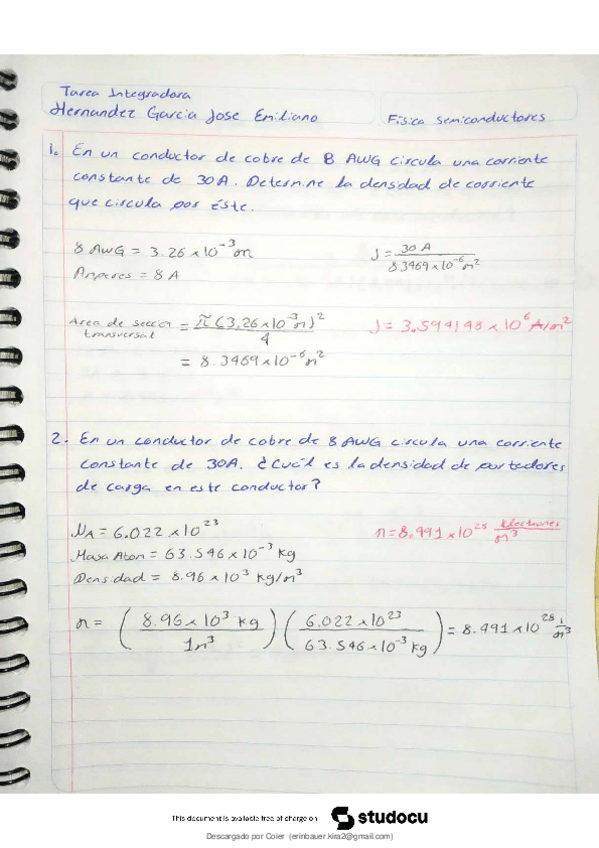 Tarea Integradora
Hernandez Garcia Jose Emiliano
Física Semiconductores
1. En un conductor de cobre de 8 AWG circula una corriente
constante de 30A. Determine la densidad de corriente
que circula por éste.
8 AWG = 3.26 x10⁻³m
Amperes = 8 A
J = 30 A / 8.3469x10⁻⁶m²
Area de seccion transversal = π(3.26x10⁻³m)² / 4
J = 3.594148 x10⁶ A/m²
= 8.3469x10⁻⁶m²
2. En un conductor de cobre de 8 AWG circula una corriente
constante de 30A. ¿Cuál es la densidad de portadores
de carga en este conductor?
NA = 6.022 x10²³
n=8.491 x10²⁸ Electrones/m³
Masa Atom = 63.546 x10⁻³ kg
Densidad = 8.96 x10³ kg/m³
n = (8.96 x10³ kg / 1m³) (6.022 x10²³ / 63.546x10⁻³ kg) = 8.491 x10²⁸ 1/m³
This document is available free of charge on
studocu
Descargado por Coier (erinbauer.kira2@gmail.com)